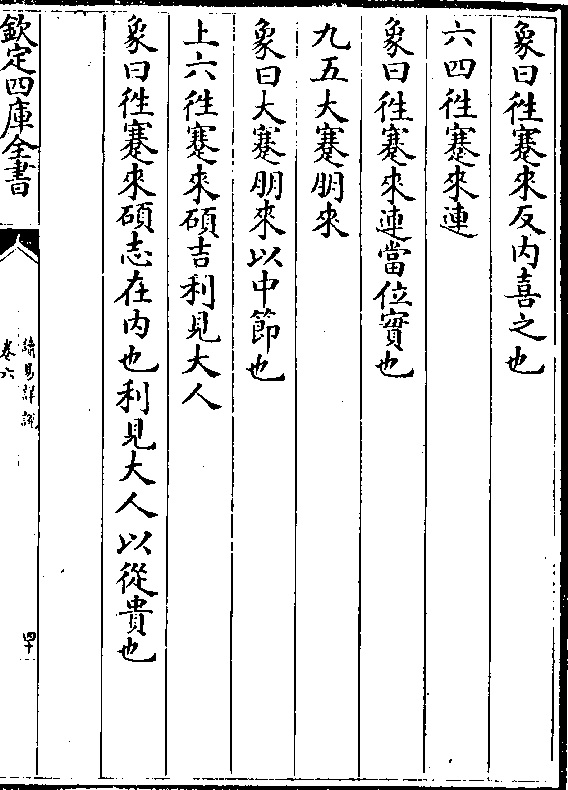 象曰徃蹇來反内喜之也
六四徃蹇來連
象曰徃蹇來連當位實也
九五大蹇朋來
象曰大蹇朋來以中節也
上六徃蹇來碩吉利見大人
象曰徃蹇來碩志在内也利見大人以從貴也
欽定四庫全書
讀易詳說
卷六
四十